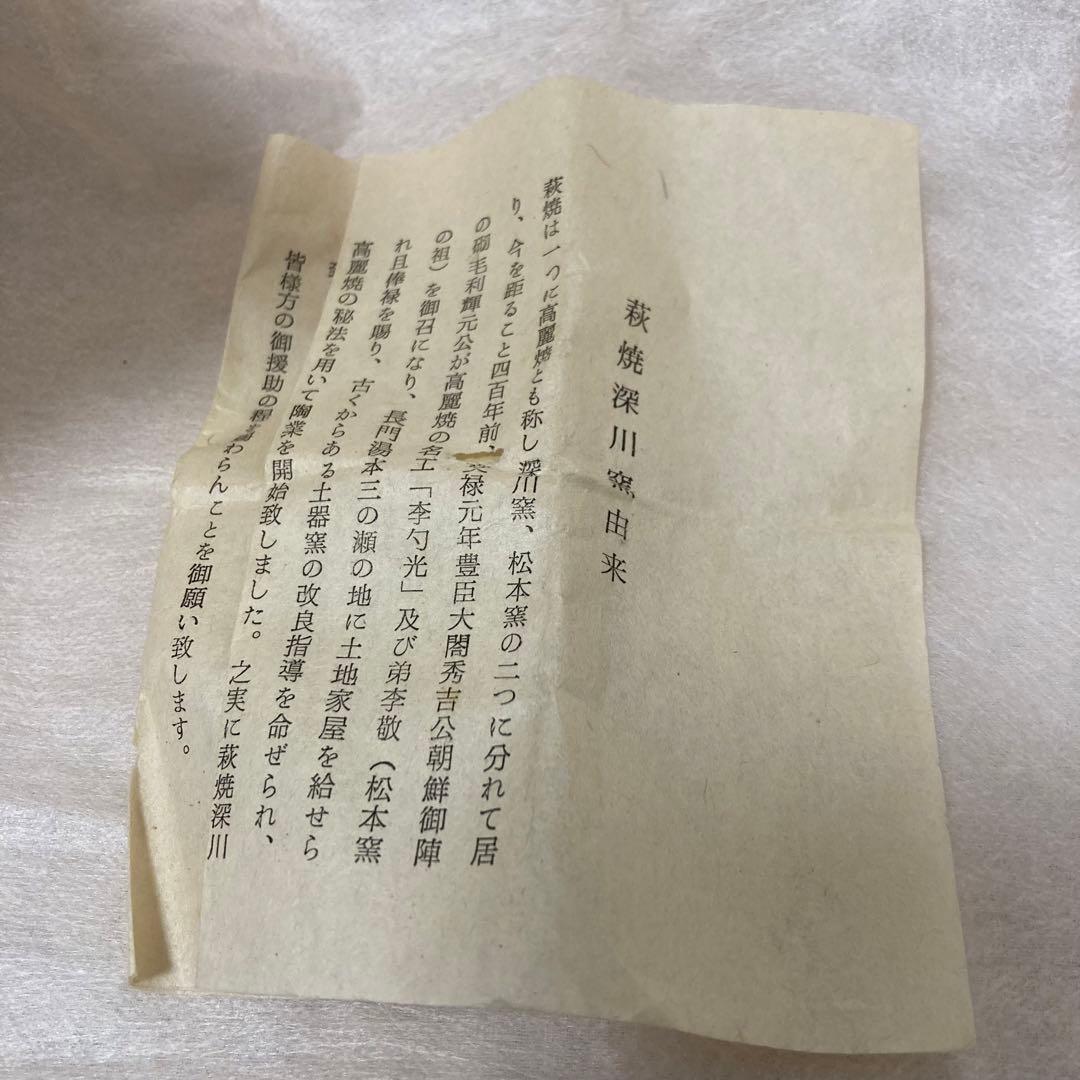 萩焼深川窯由来
萩焼は一つに高麗焼とも称し深川窯、松本窯の二つに分れて居
り、今を距ること四百年前、禄元年豊臣大閤秀吉公朝鮮御陣
の砌毛利輝元公が高麗焼の名工「李勺光」及び弟李敬（松本窯
の祖）を御召になり、長門湯本三の瀬の地に土地家屋を給せら
れ且俸禄を賜り、古くからある土器窯の改良指導を命ぜられ、
高麗焼の秘法を用いて陶業を開始致しました。之実に萩焼深川
皆様方の御援助の程賜わらんことを御願い致します。